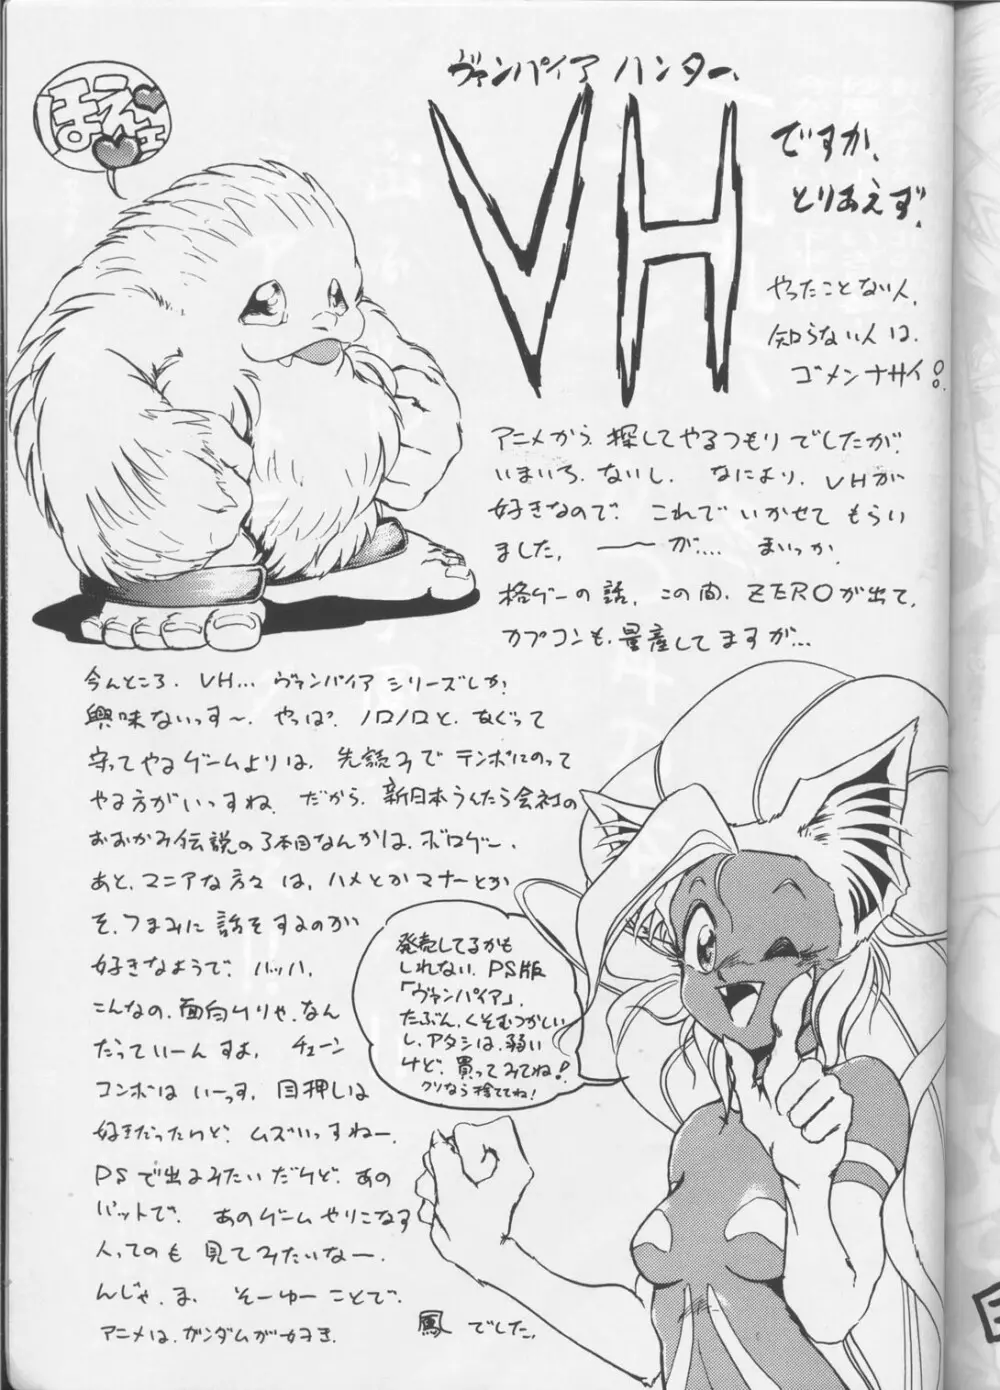 ほえェ
ヴァンパイア ハンター、
VH
ですか、
とりあえず、
やったことない人、
知らない人は、
ゴメンナサイ!
アニメから、探してやるつもりでしたが、
いまいち、ないし、なにより、VHが
好きなので、これでいかせてもらい
ました、――が…、まいっか、
格ゲーの話、この間、ZEROが出て、
カプコンも、量産してますが…
今んところ、VH…ヴァンパイアシリーズしか、
興味ないっす〜、やっぱ、ノロノロと、なぐって
守ってやるゲームよりは、先読みでテンポにのって
やる方がいっすね、だから、新日本うんたら会社の
おおかみ伝説の3本目なんかは、ボロゲー、
あと、マニアな方々は、ハメとかマナーとか
そ、つまみに話をするのが
好きなようで、バッハ、
こんなの、面白けりゃ、なん
だっていーんすよ、チェーン
コンボはいーっす、目押しは
好きだったけど、ムズいっすねー、
PSで出るみたいだけど、あの
パットで、あのゲームやりこなす
人ってのも見てみたいなー、
んじゃ、ま、そーゆーことで、
アニメは、ガンダムが好き、
発売してるかも
しれない、PS版
「ヴァンパイア」、
たぶん、くそむつかしい
し、アタシは、弱い
けど、買ってみてね!
クソなら捨ててね!
鳳でした、